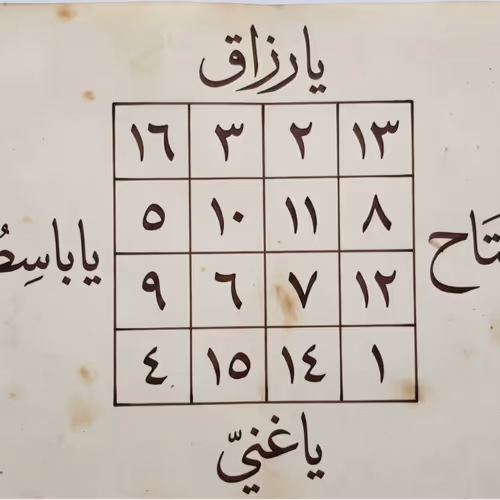 يارزاق
١٣ ٢ ٣ ١٦
٨ ١١ ١٠ ٥
١٢ ٧ ٦ ٩
١ ١٤ ١٥ ٤
ياباسِط
ياغنيّ